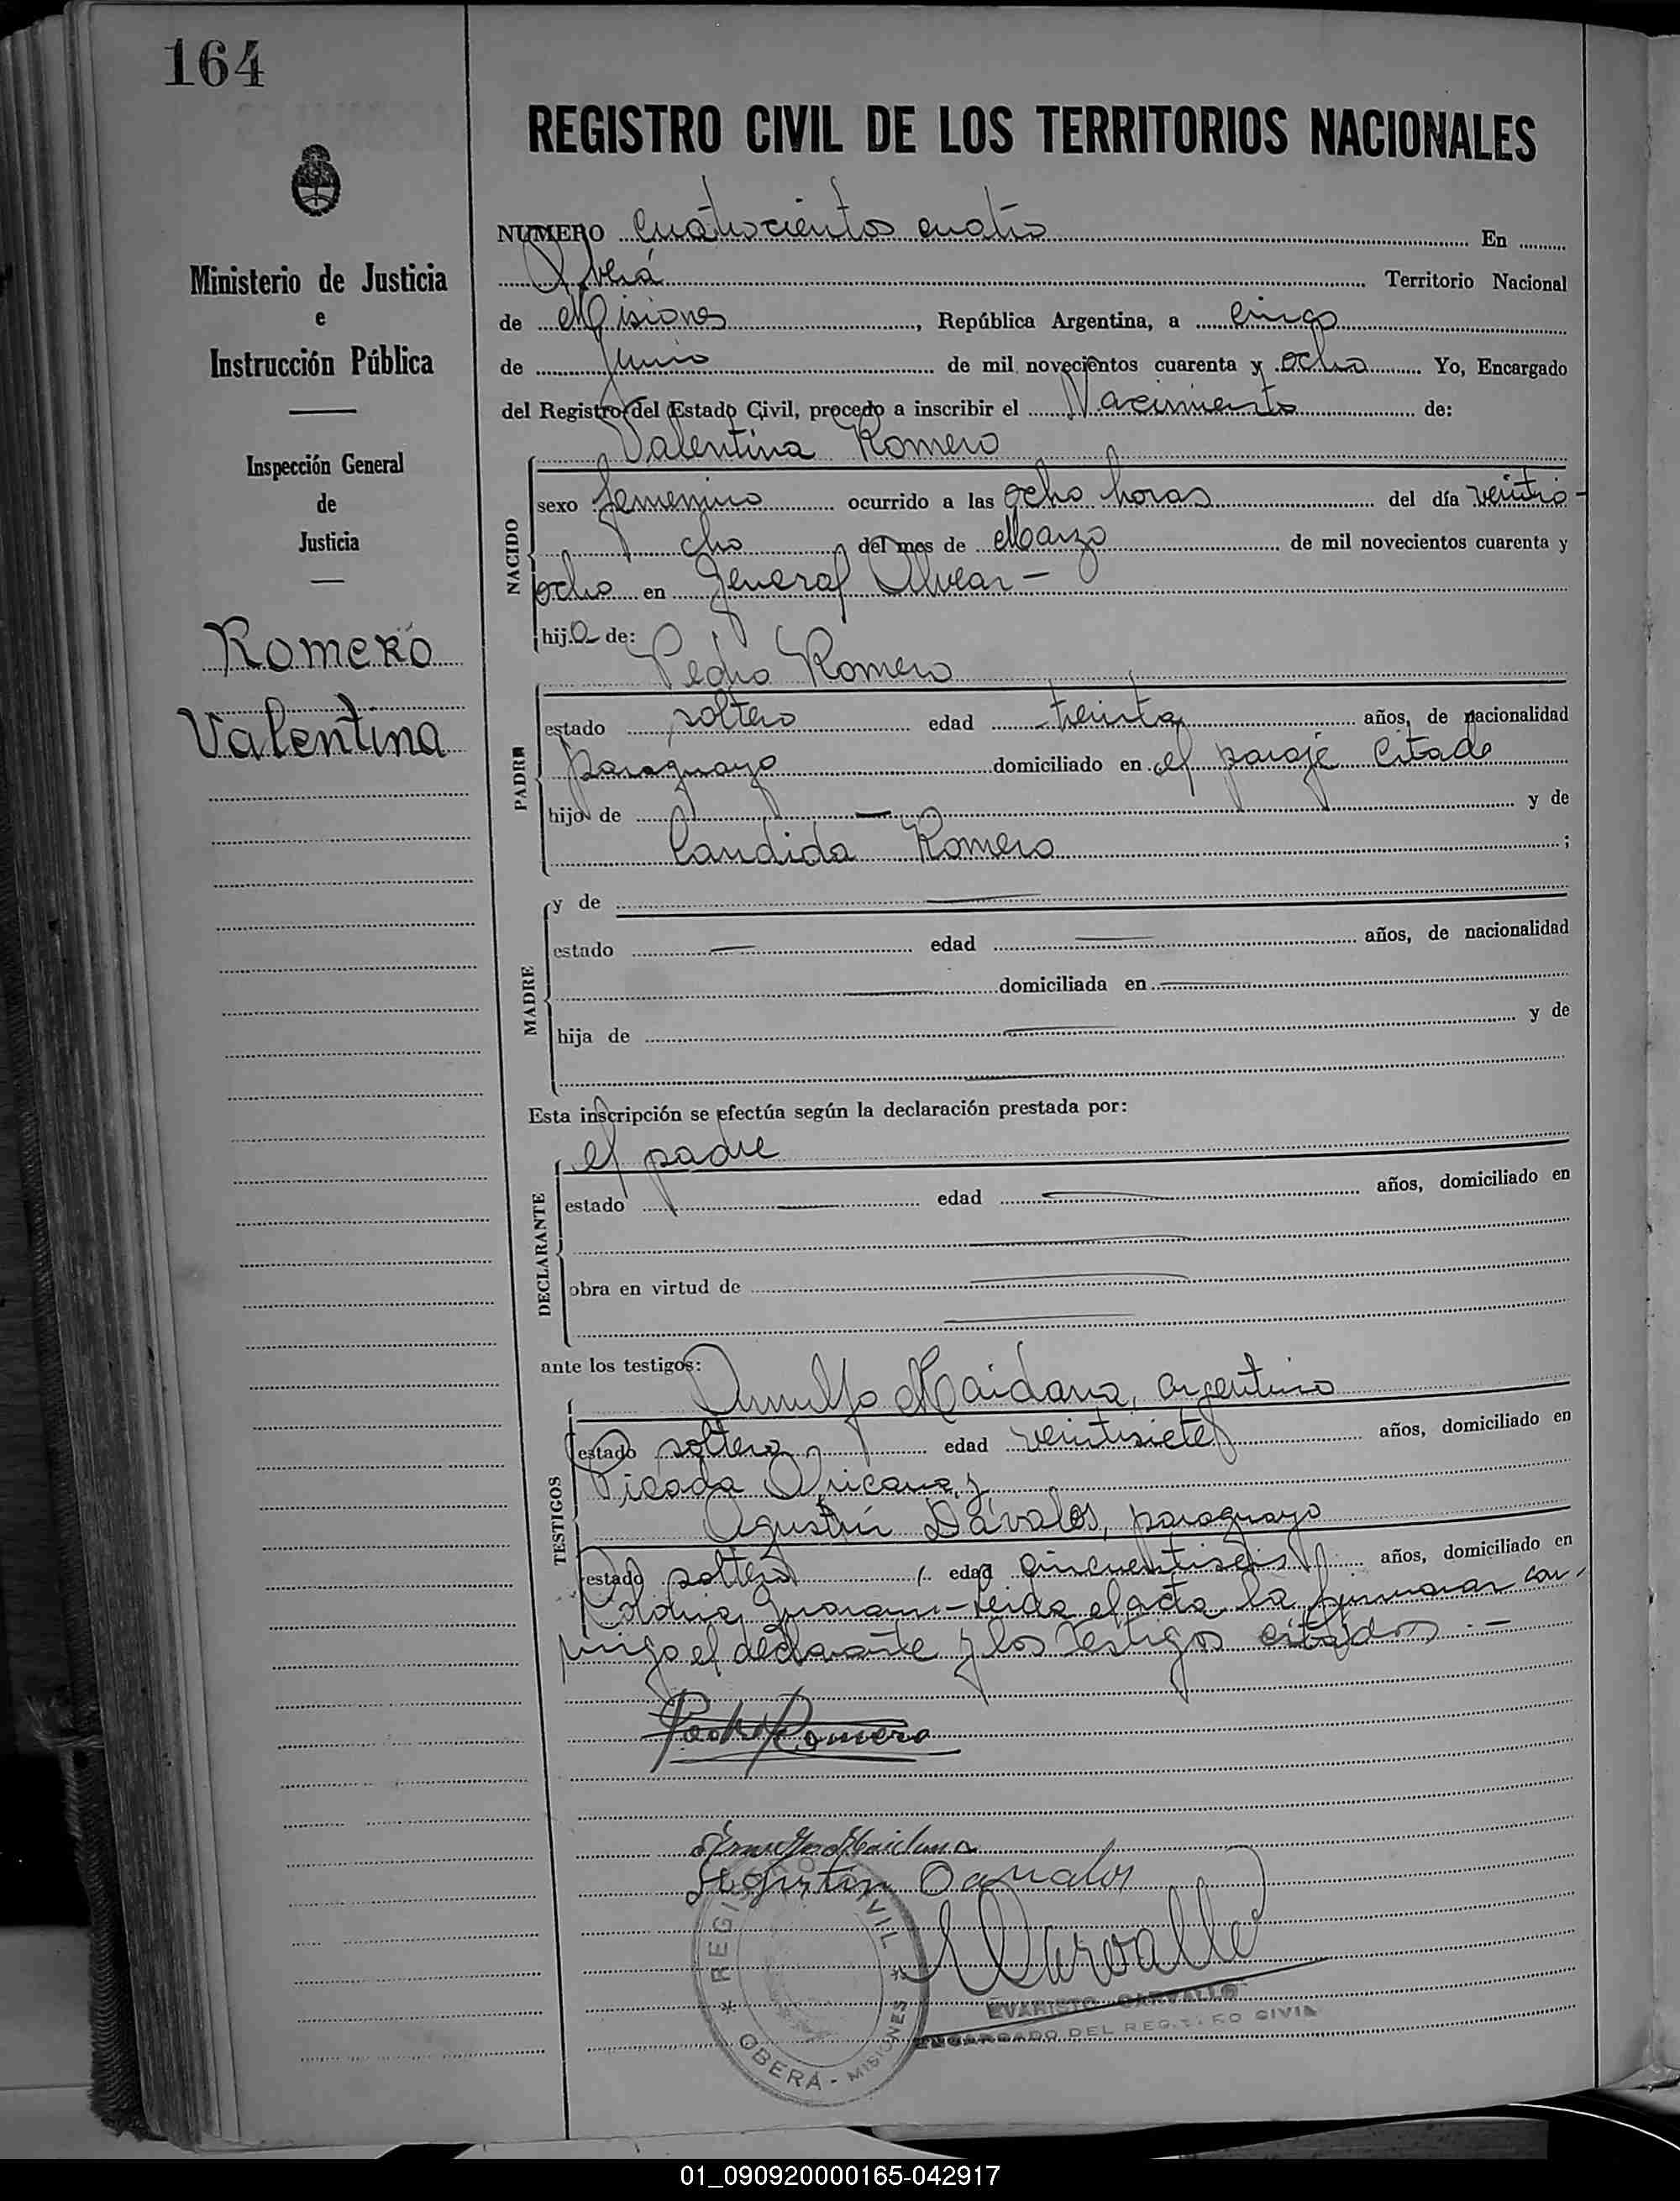 164
REGISTRO CIVIL DE LOS TERRITORIOS NACIONALES
Ministerio de Justicia
e
Instrucción Pública
Inspección General
de
Justicia
Romero
Valentina
NUMERO cuatrocientos cuatro En
Oberá Territorio Nacional
de Misiones, República Argentina, a cinco
de Junio de mil novecientos cuarenta y ocho Yo, Encargado
del Registro del Estado Civil, procedo a inscribir el Nacimiento de:
NACIDO
Valentina Romero
sexo femenino ocurrido a las ocho horas del día veintio-
cho del mes de Marzo de mil novecientos cuarenta y
ocho en General Alvear -
hija de:
PADRE
Pedro Romero
estado soltero edad treinta años, de nacionalidad
paraguayo domiciliado en el paraje citado
hijo de — y de
Candida Romero ;
MADRE
y de —
estado — edad — años, de nacionalidad
— domiciliada en —
hija de — y de
—
Esta inscripción se efectúa según la declaración prestada por:
DECLARANTE
el padre
estado — edad — años, domiciliado en
—
obra en virtud de —
—
ante los testigos:
TESTIGOS
Arnulfo Maidana, argentino
estado soltero, edad veintisiete años, domiciliado en
Picada y
Agustín Dávalos, paraguayo
estado soltero edad cincuentiseis años, domiciliado en
Colonia Guarani - leida el acta la firmaron con-
migo el declarante y los testigos citados . -
Pedro Romero
Arnulfo Maidana
Agustin Davalos
Carvallo
REGISTRO CIVIL
OBERÁ - MISIONES
EVARISTO CARVALLO
ENCARGADO DEL REGISTRO CIVIL
01_090920000165-042917